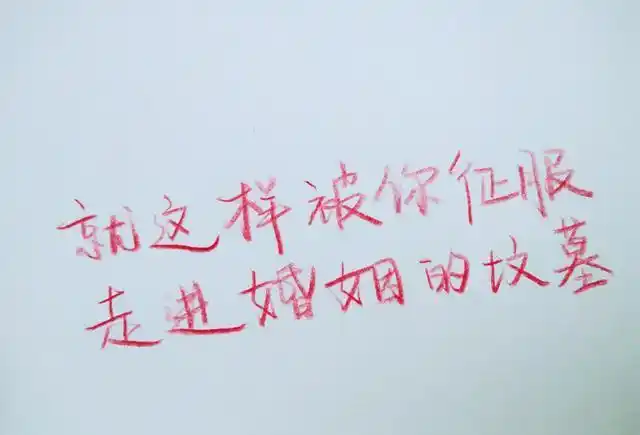 就这样被你征服
走进婚姻的坟墓